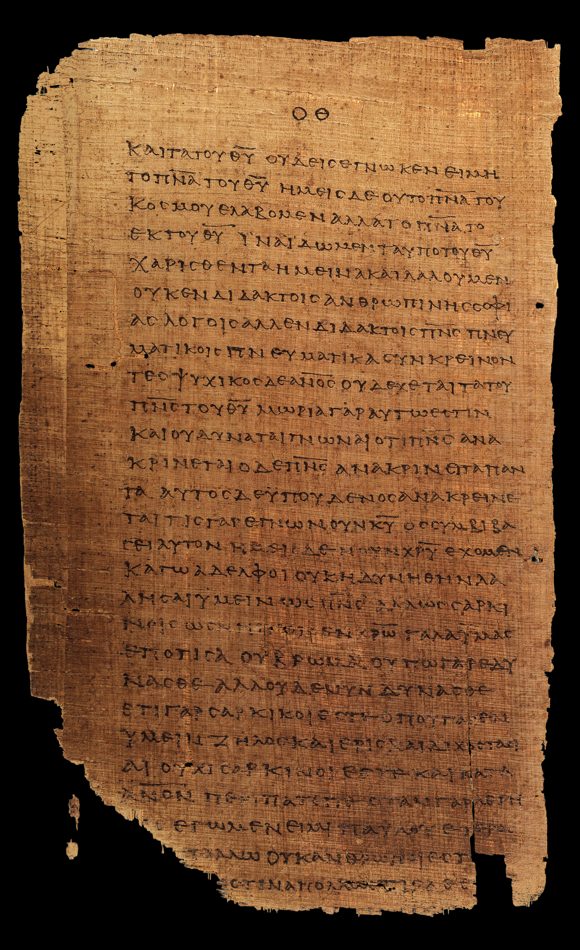 ΟΘ
ΚΑΙ ΤΑ ΤΟΥ Θ̅Υ̅ ΟΥΔΕΙC ΕΓΝΩΚΕΝ ΕΙ ΜΗ
ΤΟ Π̅Ν̅Α̅ ΤΟΥ Θ̅Υ̅ ΗΜΕΙC ΔΕ ΟΥ ΤΟ Π̅Ν̅Α̅ ΤΟΥ
ΚΟCΜΟΥ ΕΛΑΒΟΜΕΝ ΑΛΛΑ ΤΟ Π̅Ν̅Α̅ ΤΟ
ΕΚ ΤΟΥ Θ̅Υ̅ ΙΝΑ ΙΔΩΜΕΝ ΤΑ ΥΠΟ ΤΟΥ Θ̅Υ̅
ΧΑΡΙCΘΕΝΤΑ ΗΜΕΙΝ Α ΚΑΙ ΛΑΛΟΥΜΕΝ
ΟΥΚ ΕΝ ΔΙΔΑΚΤΟΙC ΑΝΘΡΩΠΙΝΗC CΟΦΙ
ΑC ΛΟΓΟΙC ΑΛΛ ΕΝ ΔΙΔΑΚΤΟΙC Π̅Ν̅C̅ ΠΝΕΥ
ΜΑΤΙΚΟΙC ΠΝΕΥΜΑΤΙΚΑ CΥΝΚΡΕΙΝΟΝ
ΤΕC ΨΥΧΙΚΟC ΔΕ Α̅Ν̅Ο̅C̅ ΟΥ ΔΕΧΕΤΑΙ ΤΑ ΤΟΥ
Π̅Ν̅C̅ ΤΟΥ Θ̅Υ̅ ΜΩΡΙΑ ΓΑΡ ΑΥΤΩ ΕCΤΙΝ
ΚΑΙ ΟΥ ΔΥΝΑΤΑΙ ΓΝΩΝΑΙ ΟΤΙ Π̅Ν̅C̅ ΑΝΑ
ΚΡΙΝΕΤΑΙ Ο ΔΕ Π̅Ν̅C̅ ΑΝΑΚΡΙΝΕΙ ΤΑ ΠΑΝ
ΤΑ ΑΥΤΟC ΔΕ ΥΠ ΟΥΔΕΝΟC ΑΝΑΚΡΕΙΝΕ
ΤΑΙ ΤΙC ΓΑΡ ΕΓΝΩ ΝΟΥΝ Κ̅Υ̅ ΟC CΥΝΒΙΒΑ
CΕΙ ΑΥΤΟΝ ΗΜΕΙC ΔΕ ΝΟΥΝ Χ̅Ρ̅Υ̅ ΕΧΟΜΕΝ
ΚΑΓΩ ΑΔΕΛΦΟΙ ΟΥΚ ΗΔΥΝΗΘΗΝ ΛΑ
ΛΗCΑΙ ΥΜΕΙΝ ΩC Π̅Ν̅C̅ ΑΛΛ ΩC CΑΡΚΙ
ΝΟΙC ΩC ΝΗΠΙΟΙC ΕΝ Χ̅Ρ̅Ω̅ ΓΑΛΑ ΥΜΑC
ΕΠΟΤΙCΑ ΟΥ ΒΡΩΜΑ ΟΥΠΩ ΓΑΡ ΕΔΥ
ΝΑCΘΕ ΑΛΛ ΟΥΔΕ ΝΥΝ ΔΥΝΑCΘΕ
ΕΤΙ ΓΑΡ CΑΡΚΙΚΟΙ ΕCΤΕ ΟΠΟΥ ΓΑΡ ΕΝ
ΥΜΕΙΝ ΖΗΛΟC ΚΑΙ ΕΡΙC ΚΑΙ ΔΙΧΟCΤΑCΙ
ΑΙ ΟΥΧΙ CΑΡΚΙΝΟΙ ΕCΤΕ ΚΑΙ ΚΑΤΑ
ΑΝΟΝ ΠΕΡΙΠΑΤΕΙΤΕ ΟΤΑΝ ΓΑΡ ΛΕΓΗ
ΕΓΩ ΜΕΝ ΕΙΜΙ ΠΑΥΛΟΥ
ΟΥΚ ΑΝΘΡΩΠΟΙ